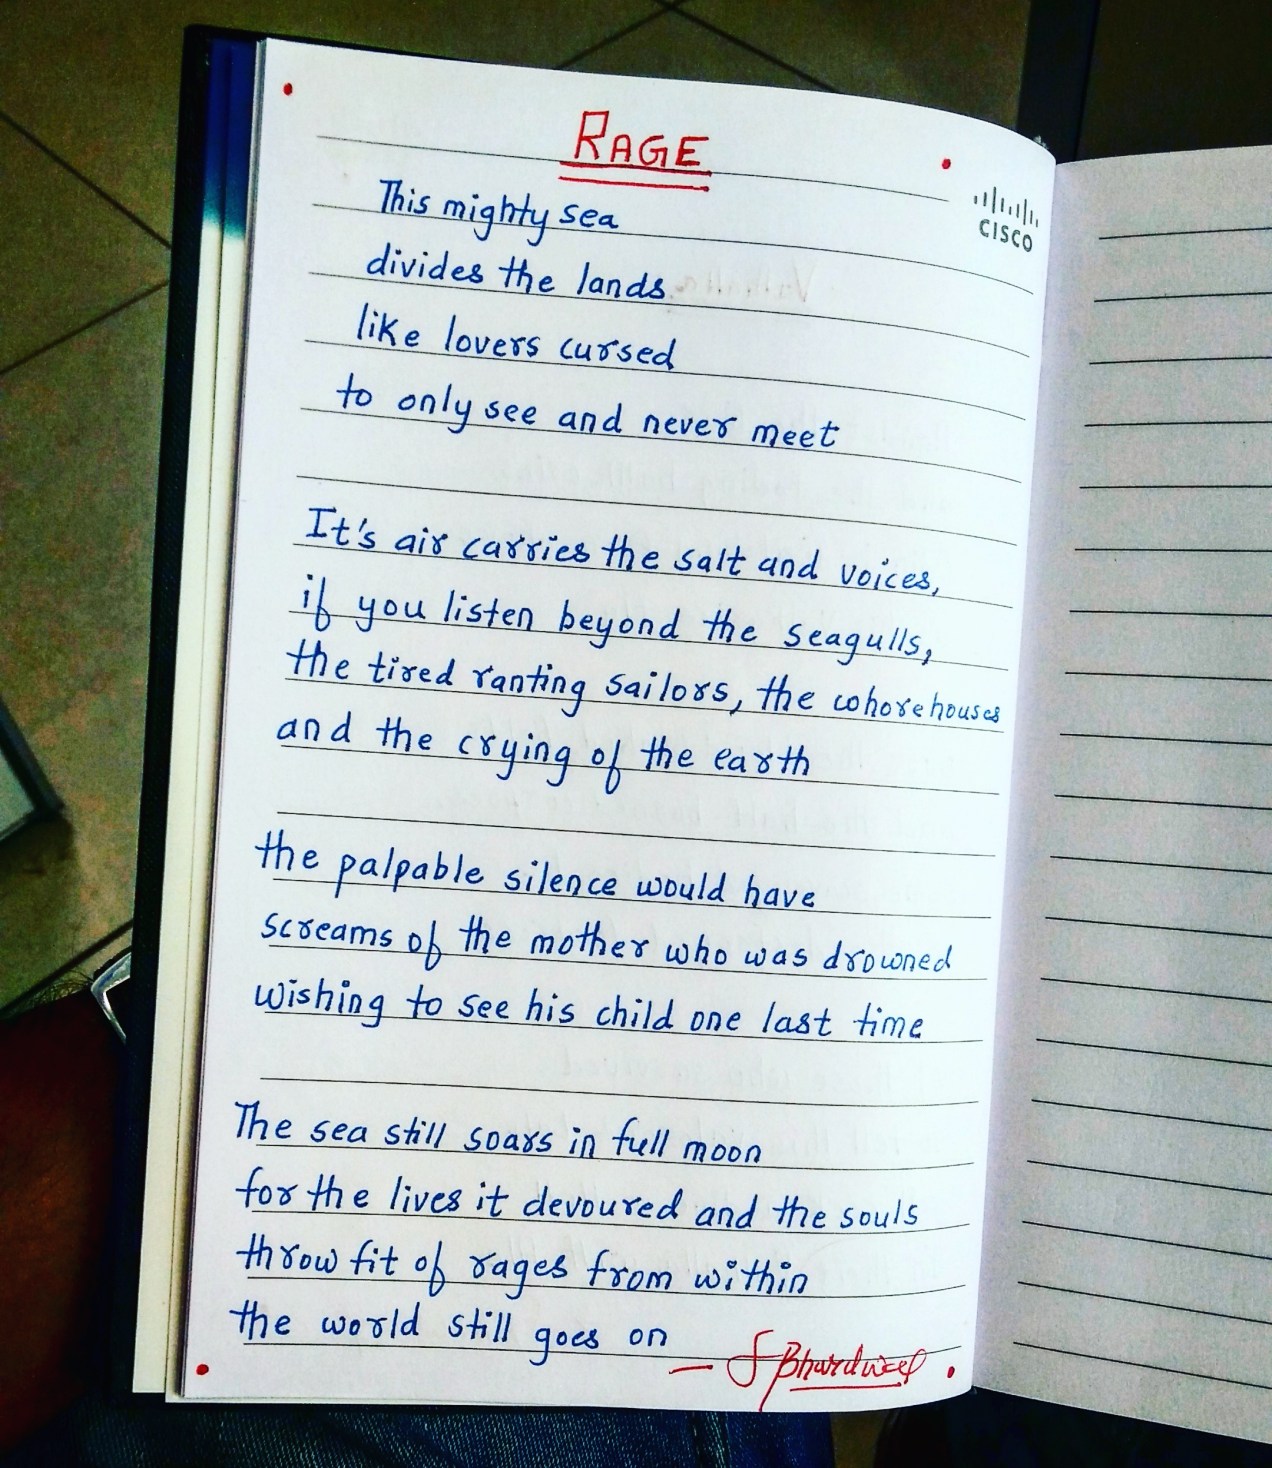 RAGE
CISCO
This mighty sea
divides the lands
like lovers cursed
to only see and never meet
It's air carries the salt and voices,
if you listen beyond the seagulls,
the tired ranting sailors, the whorehouses
and the crying of the earth
the palpable silence would have
screams of the mother who was drowned
wishing to see his child one last time
The sea still soars in full moon
for the lives it devoured and the souls
throw fit of rages from within
the world still goes on
— S Bhardwaj